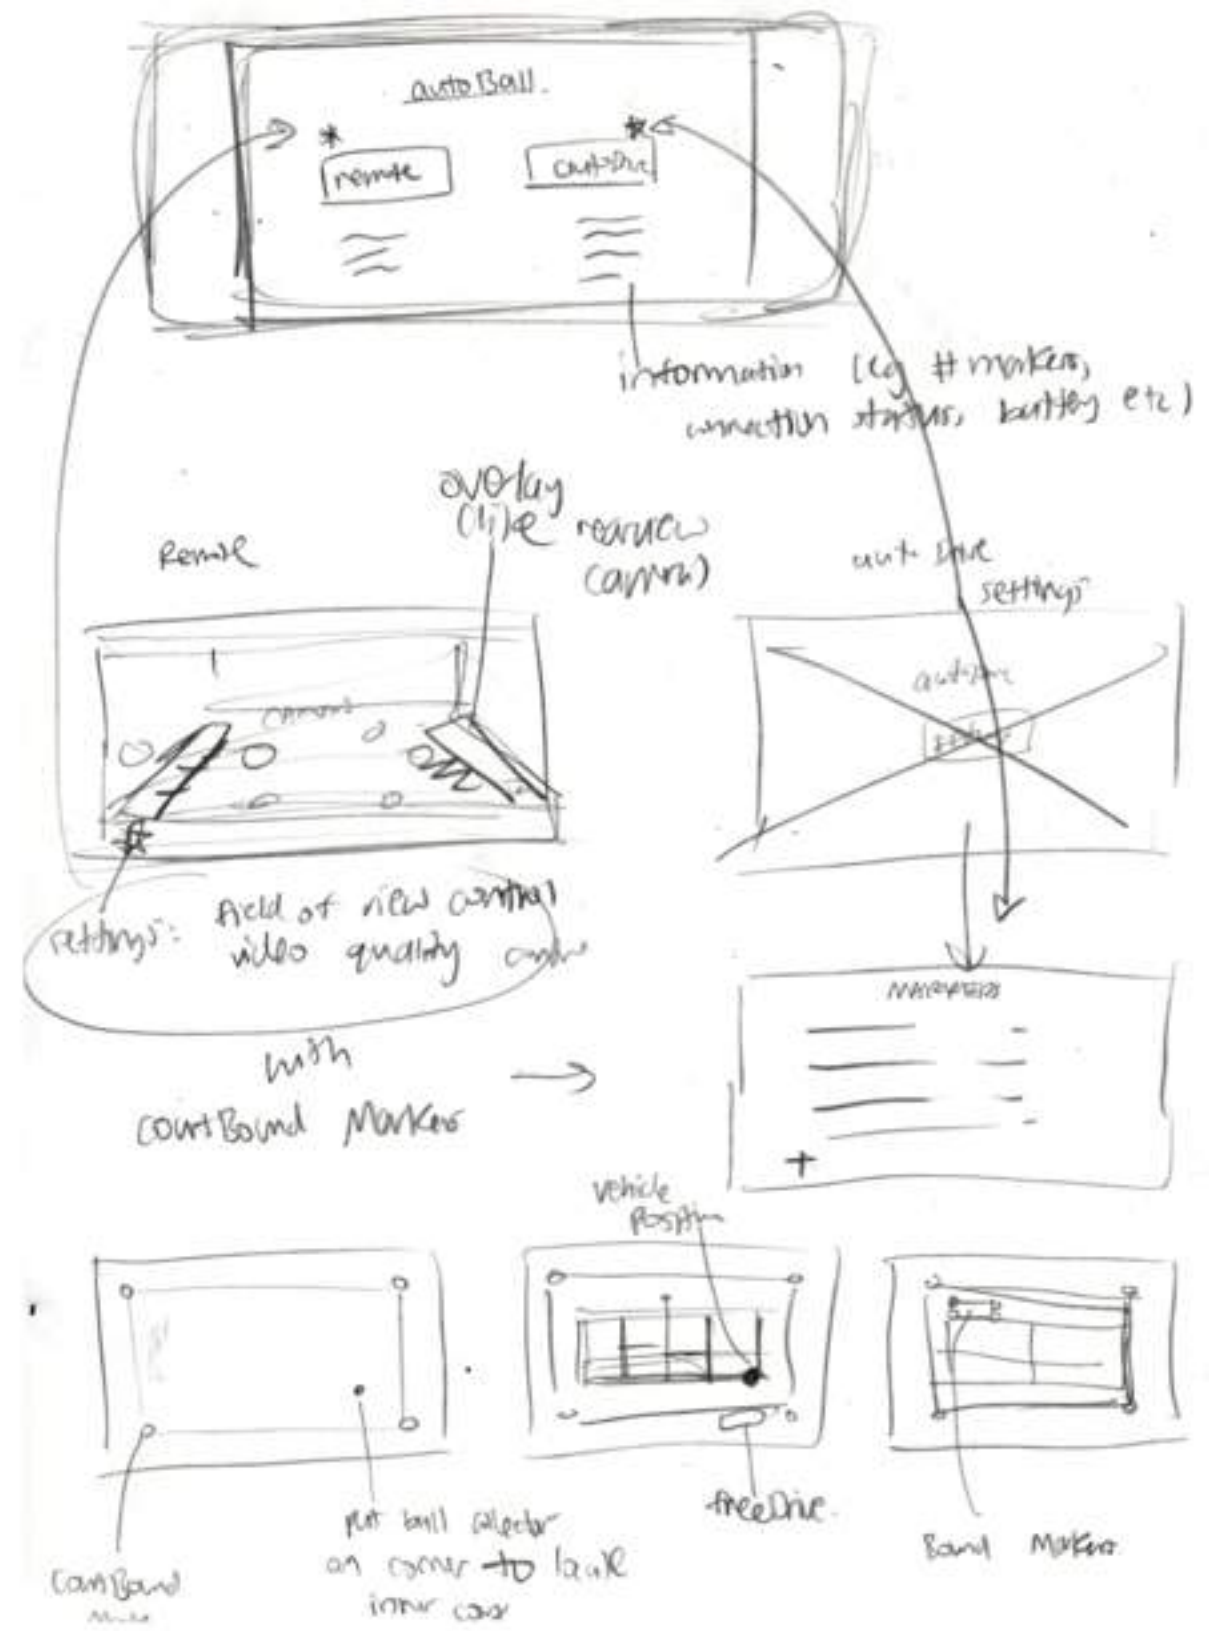 autoBall.
remote
autoDrive
information (eg # markers,
connection status, battery etc)
overlay
(like rearview
camera)
Remote
auto Drive
settings
camera
autoDrive
settings: field of view control
video quality
MARKERS
with
CourtBound Markers
vehicle
position
freeDrive.
put ball collector
on corner to locate
inner court
CourtBound
Bound Markers